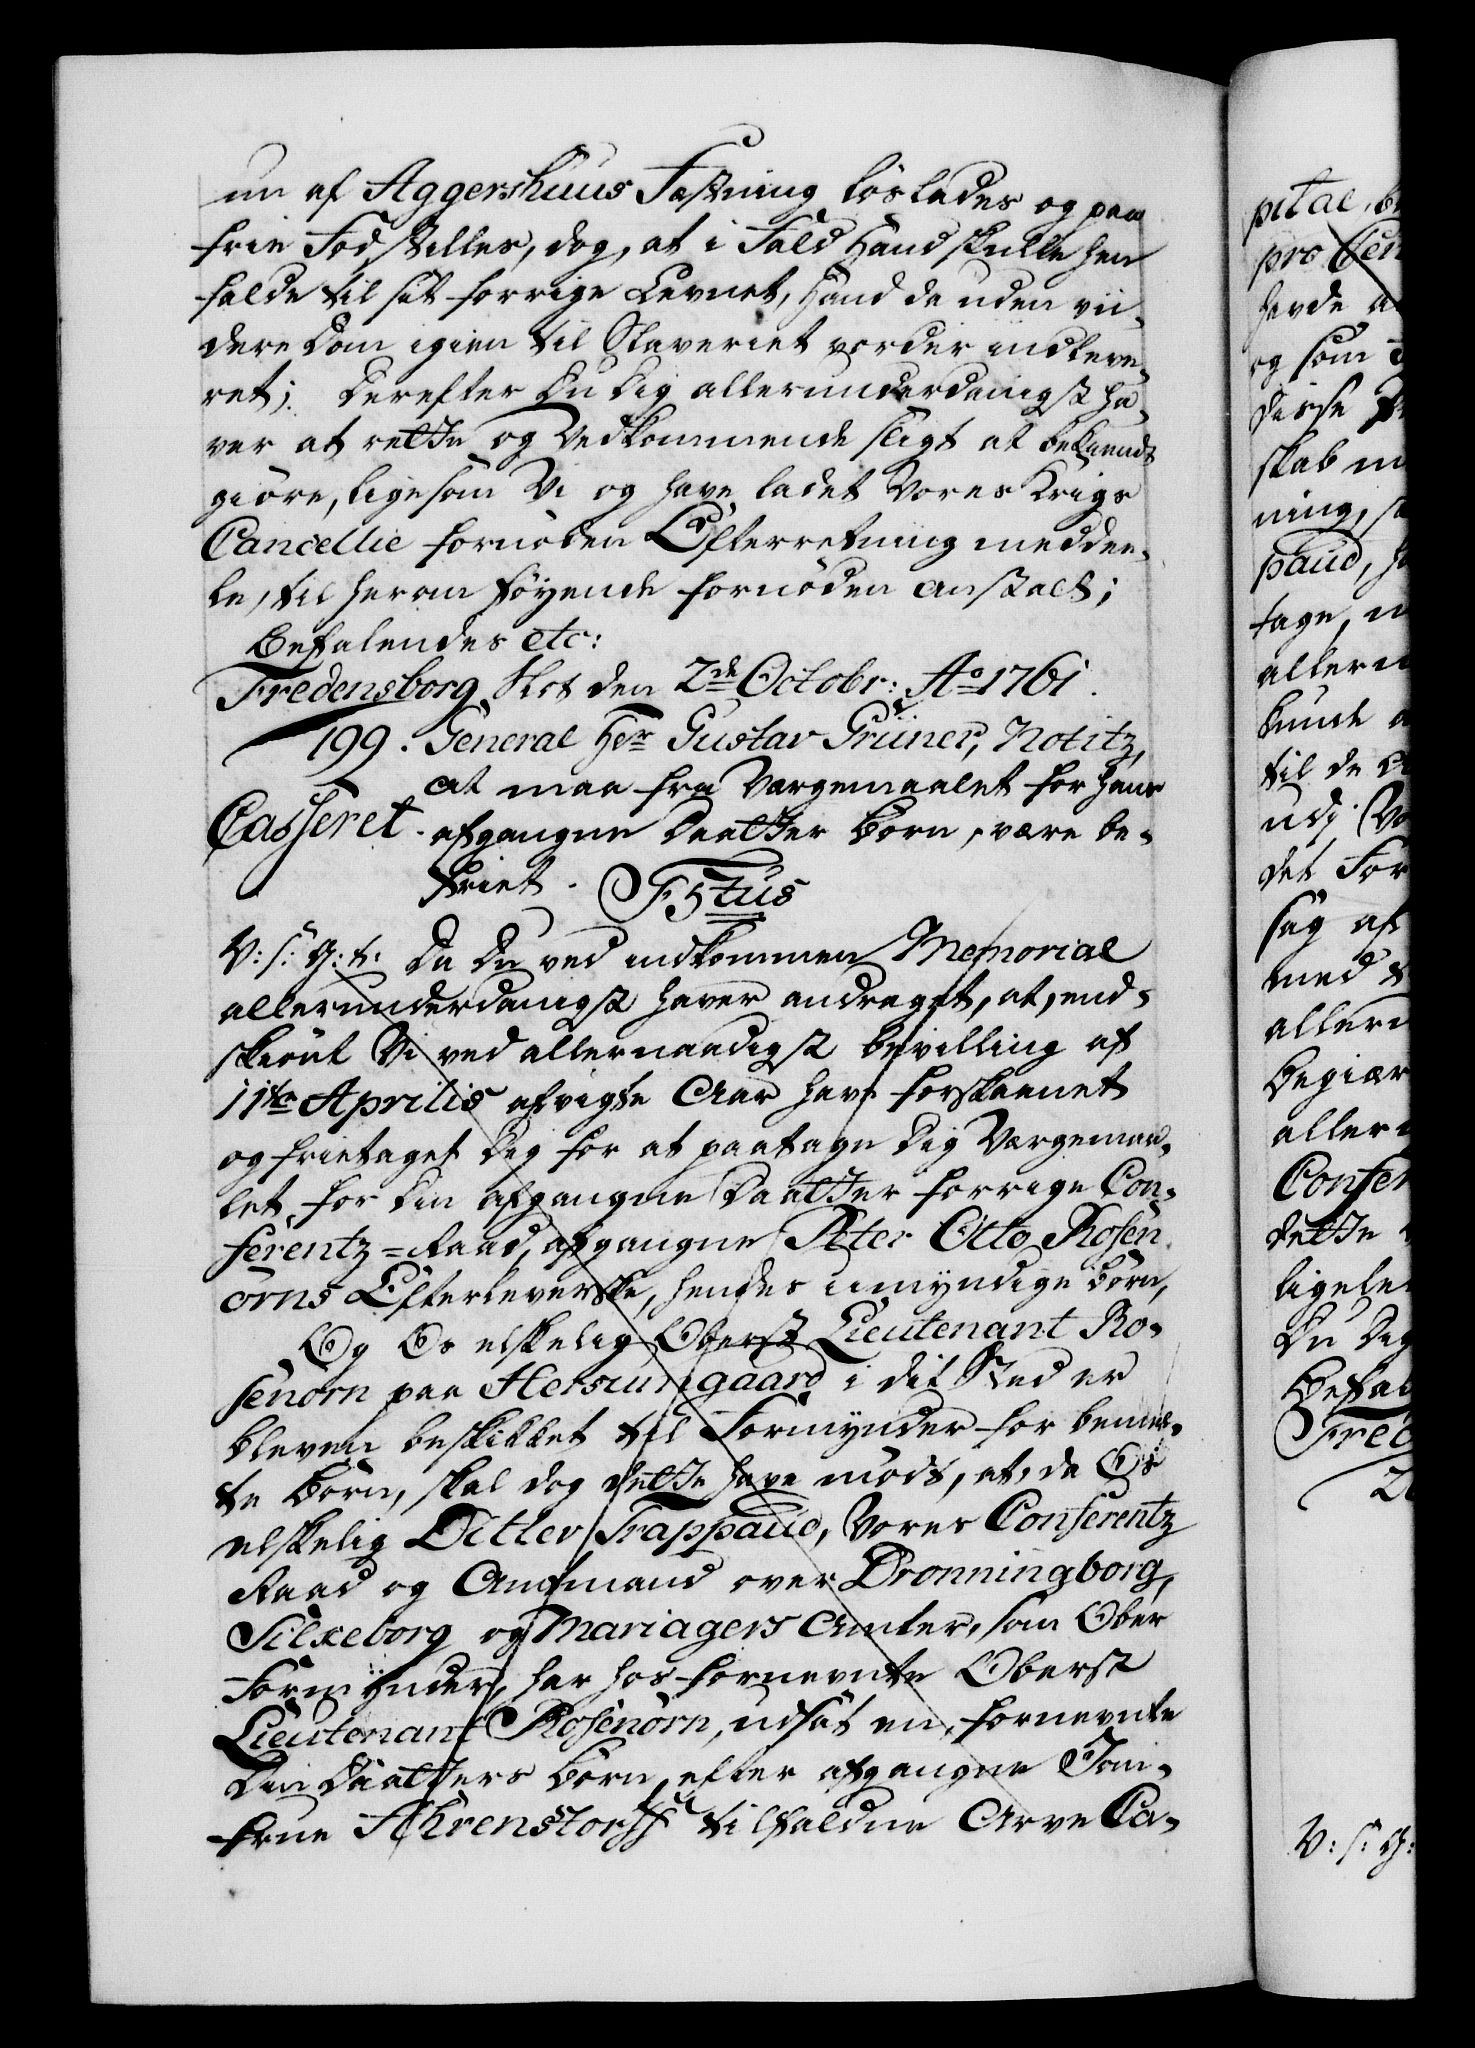 un af Aggershuus Fæstning løslades og paa
frie Fod stilles, dog, at i Fald Hand skulle hen
falde til sit forrige Levnet, Hand da uden vii-
dere Dom igien til Slaveriet vorder indleve-
ret; Derefter Du Dig allerunderdanigst ha-
ver at rette og Vedkommende sligt at bekiendt
giöre, ligesom Vi og have ladet Vores Krigs
Cancellie fornøden Efterretning meddee-
le, til herom føyende fornöden Anstalt;
Befalendes etc:
Fredensborg Slot den 2de Octobr: Ao 1761.
199. General Hr Gustav Grüner, Notitz,
at maa fra Værgemaalet for hans
Casseret. afgangne Daatter Börn, være be-
friet.
F5tus
V: S: G: t: Da Du ved indkommen Memorial
allerunderdanigst haver andraget, at, end-
skiönt Vi ved allernaadigst bevilling af
11te Aprilis afvigte Aar have forskaanet
og frietaget Dig for at paatage Dig Værgemaa-
let for Din afgangne Daatter forrige Con-
ferentz-Raad, afgangne Peter Otto Rosen
örns Efterleverske, hendes umyndige Börn,
Og Os elskelig Oberst Lieutenant Ro-
senörn paa Hersumgaard i dit Sted er
bleven beskikket til Formynder for bemel-
te Börn, skal dog dette have mödt, at, da Os
elskelig Ditlev Trappaud, Vores Conferentz
Raad og Amtmand over Dronningborg,
Silkeborg og Mariagers Amter, som Ober
Formynder, har hos fornevnte Oberst
Lieutenant Rosenörn, udsat en, fornevnte
Din Daatters Börn, efter afgangne Jom-
frue Ahrenstorff tilfaldne Arve Ca-
pital, be
pro Cen
havde a
og som
disse
skab m
ning, s
paud, h
tage, n
allern
kunde a
til de
udj Vo
det For
sag af
med
allern
Begiær
allern
Conferen
dette
ligele
Du Dig
Befal
Fred
V: S: G: